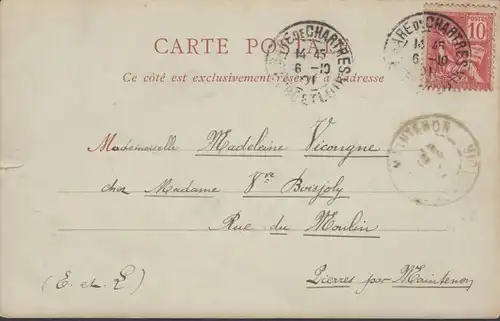 CARTE POSTALE
Ce côté est exclusivement réservé à l'adresse
GARE DE CHARTRES
14 45
6 -10
01
EURE ET LOIR
GARE DE CHARTRES
14 45
6 -10
01
10
MAINTENON
Mademoiselle Madeleine Vicongne
chez Madame Vve Boisjoly
Rue du Moulin
(E. et L) Pierres par Maintenon